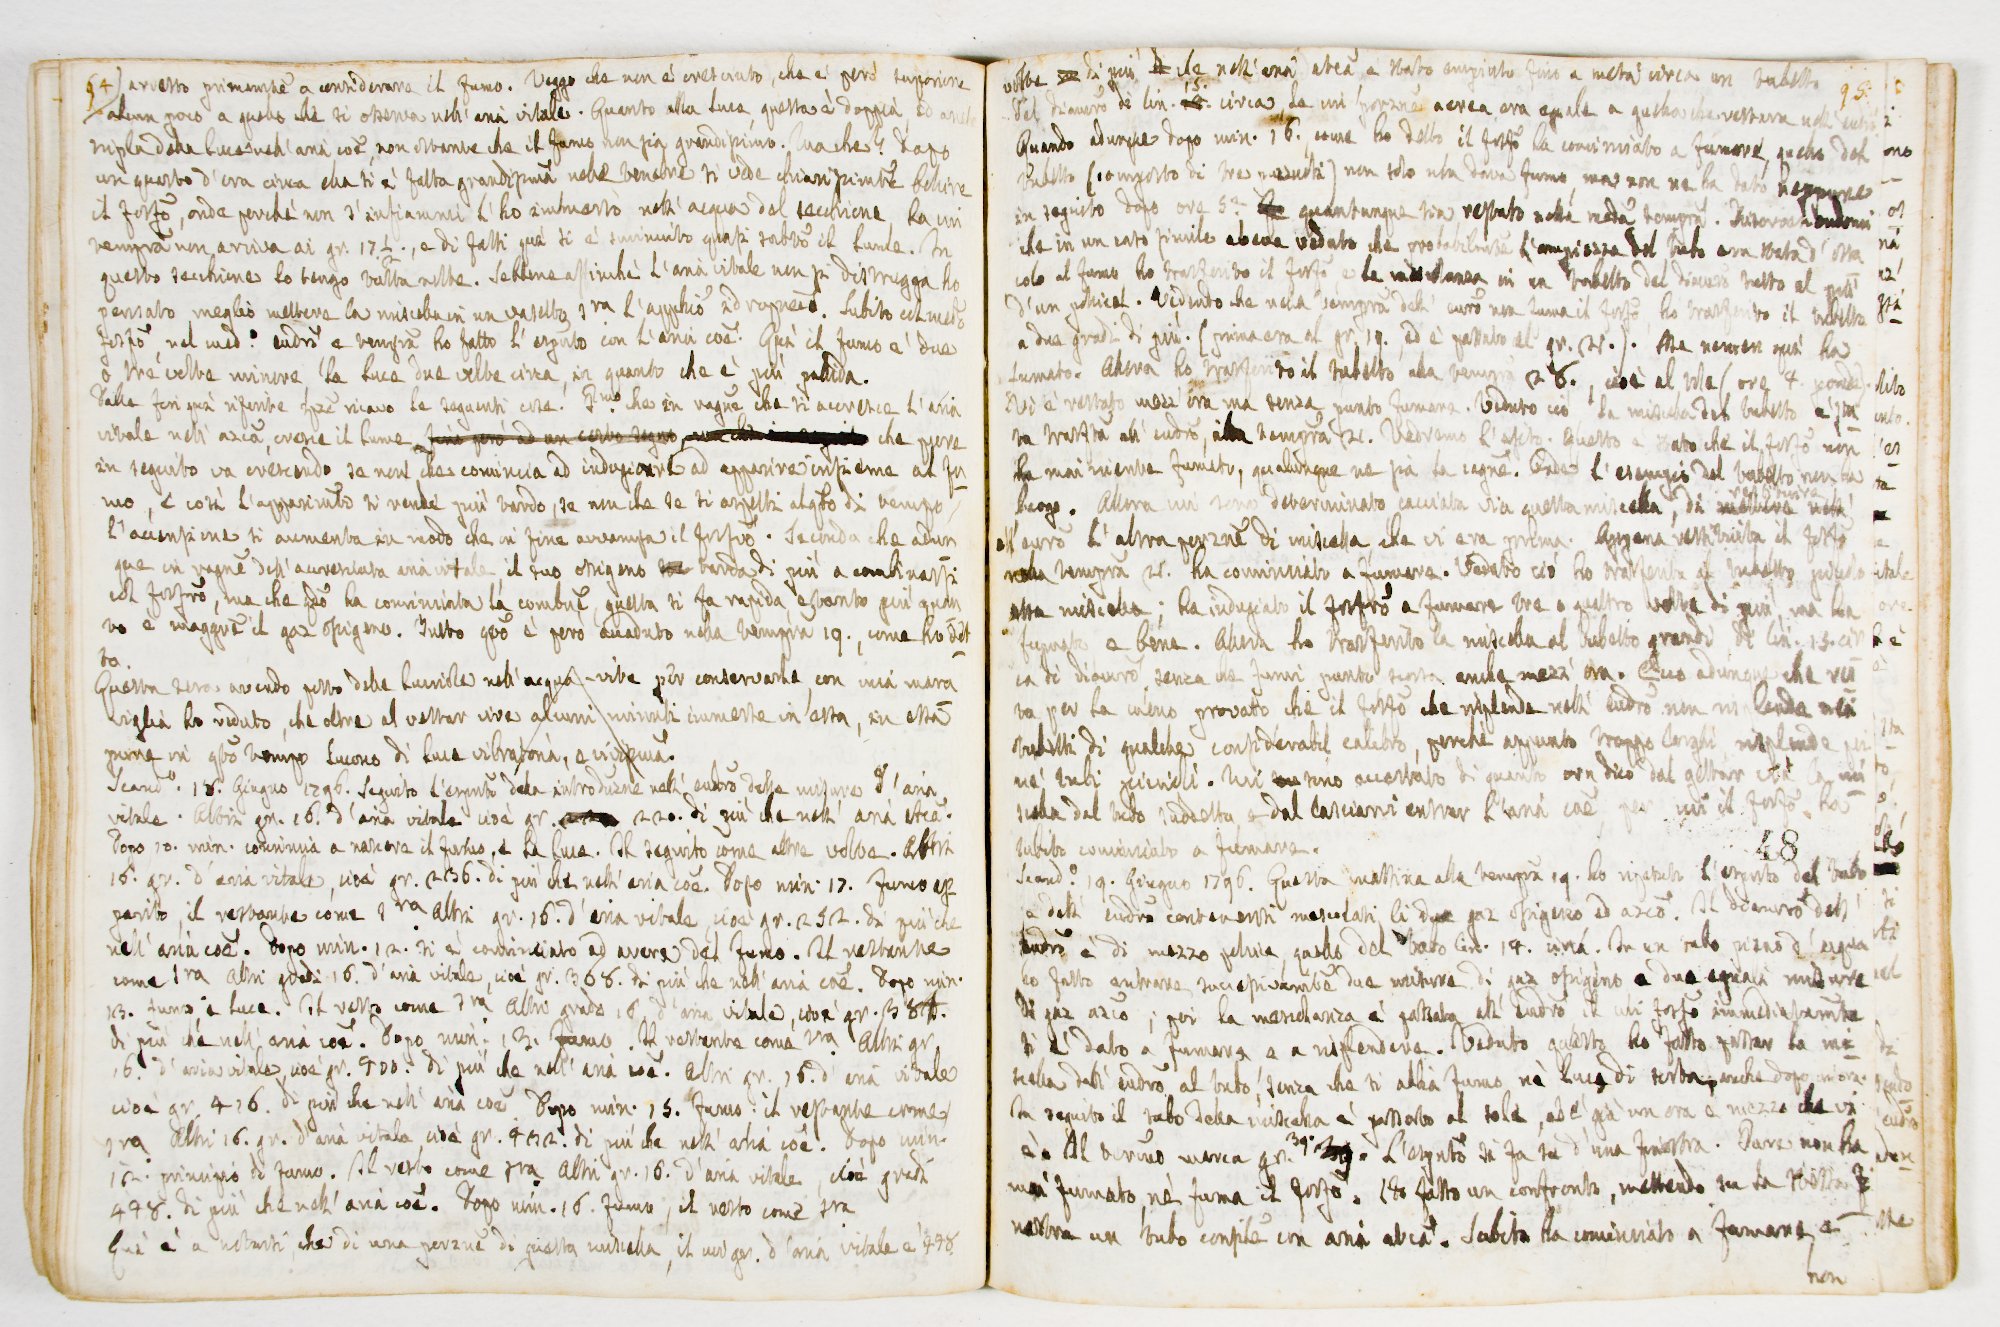 94) arresto primamte a considerare il fumo. Veggo che non è cresciuto, che è però superiore
alcun poco a quello che si osserva nell'aria vitale. Quanto alla luce questa è doppia, ed anche
tripla della luce nell'aria coe, non ostante che il fumo non sia grandissimo. Ma che? Dopo
un quarto d'ora circa ella si è fatta grandissima nelle tenebre si vede chiarissimte bollire
il fosfo, onde perchè non s'infiammi l'ho immerso nell'acqua del secchione la cui
tempra non arriva ai gr. 17 1/2, e di fatti quà si è sminuito quasi tutto il lume. In
questo secchione lo tengo tutta notte. Sebbene affinchè l'aria vitale non si distrugga ho
pensato meglio mettere la miscella in un vasetto
fosfo nel med.o eudro e tempra ho fatto l'esprto con l'aria coe. Quà il fumo è due
o tre volte minore, la luce due volte circa, in quanto che è più pallida.
Dalle fin quà riferite spze ricavo le seguenti cose. Pmo che in ragne che si accresce l'aria
vitale nell'azca, cresce il lume, fino però ad un certo segno, che pure
in seguito va crescendo se non che comincia ad indugiare ad apparire insieme al fu
mo, e così l'apparimto si rende più tardo, se non che se si aspetti alqto di tempo,
l'accensione si aumenta in modo che in fine avvampa il fosfro. Seconda che adun
que in ragne dell'accresciuta aria vitale, il suo ossigeno tarda di più a combinarsi
col fosfro, ma che qdo ha cominciata la combne, questa si fa rapida, e tanto più quan
to è maggre il gaz ossigeno. Tutto qto è però accaduto nella tempra 19., come ho det
to.
Questa sera avendo posto delle lucciole nell'acqua - vite per conservarle, con mia mara
viglia ho veduto, che oltre al restar vive alcuni minuti immerse in essa, in essa
pure in qto tempo lucono di luce vibratoria, e vivissima.
Scand.o 18. Giugno 1796. Seguito l'esprto della introduzne nell'eudro delle misure d'aria
vitale. Altri gr. 16. d'aria vitale cioè gr. 220. di più che nell'aria atca.
Dopo 10. min. comincia a nascere il fumo, e la luce. Il seguito come altre volte. Altri
16. gr. d'aria vitale, cioè gr. 236. di più che nell'aria coe. Dopo min. 17. fumo ap
parito, il restante come sra Altri gr. 16. d'aria vitale, cioè gr. 252. di più che
nell'aria coe. Dopo min. 12. si è cominciato ad avere del fumo. Il restante
come sra Altri gradi 16. d'aria vitale, cioè gr. 368. di più che nell'aria coe. Dopo min.
13. fumo e luce. Il resto come sra Altri gradi 16. d'aria vitale, cioè gr. 384.
di più che nell'aria coe. Dopo min. 13. fumo. Il restante come sra Altri gr.
16. d'aria vitale, cioè gr. 400. di più che nell'aria coe. Altri gr. 16. d'aria vitale
cioè gr. 416. di più che nell'aria coe. Dopo min. 15. fumo: il restante come
sra Altri 16. gr. d'aria vitale cioè gr. 432. di più che nell'aria coe. Dopo min.
12. principio di fumo. Il resto come sra Altri gr. 16. d'aria vitale, cioè gradi
448. di più che nell'aria coe. Dopo min. 16. fumo, il resto come sra
Quà è a notarsi che di una porzne di questa miscella, il cui gr. d'aria vitale è 448.
95.
volte di più che nell'aria atca è stato empiuto fino a metà circa un tubetto
del diametro di lin. 15. circa, la cui porzne aerea era eguale a quella che restava nell'eudro
Quando adunque dopo min. 16., come ho detto il fosfo ha cominciato a fumare, quello del
tubetto (composto di tre pezzetti) non solo non dava fumo, ma non ne ha dato neppure
in seguito dopo ore 5 quantunque sia restato nella meda tempra.
che in un caso simile aveva veduto che probabilmte l'ampiezza del tubo era stata d'osta
colo al fumo ho trasferito il fosfo e la miscellanza in un tubetto del diametro netto al più
d'un pollice. Vedendo che nella tempra dell'eudro non fuma il fosfo, ho trasferito il tubetto
a due gradi di più. (prima era al gr. 19., ed è passato al gr. 21.). Ma nemen quà ha
fumato. Allora ho trasferito il tubetto alla tempra 28., cioè al sole (ore 4. pomde).
Vi è restato mezz'ora ma senza punto fumare. Veduto ciò la miscella del tubetto è sta
ta trasfta all'eudro, alla tempra 21. Vedremo l'esito. Questo è stato che il fosfo non
ha mai niente fumato, qualunque ne sia la cagne. Onde l'esempio del tubetto non ha
luogo. Allora mi sono determinato cacciata via questa miscella, di restituire
all'eudro l'altra porzne di miscella che vi era prima. Appena restituita il fosfo
nella tempra 21. ha cominciato a fumare. Veduto ciò ho trasferito al tubetto piccolo
essa miscella; ha indugiato il fosfro a fumare tre o quattro volte di più, ma ha
fumato e bene. Allora ho trasferito la miscella al tubetto grande di lin. 15. cir
ca di diametro, senza che fumi punto scorsa anche mezz'ora. Ecco adunque che re
sta per lo meno provato che il fosfo che risplende nell'eudro non risplende nei
tubetti di qualche considerabil calibro, perchè appunto troppo larghi risplende poi
ne' tubi piccioli. Mi sono accertato di quanto ora dico dal gettar via la mi
scella dal tubo suddetto e dal lasciarvi entrar l'aria coe per cui il fosfo ha
subito cominciato a fumare.
48
Scand.o 19. Giugno 1796. Questa mattina alla tempra 19. ho ripetuto l'esprto del tubo
e dell'eudro contenenti mescolati li due gaz ossigeno ed azco. Il diamtro dell'
eudro è di mezzo pollice, quello del tubo lin. 14. circa. In un tubo pieno d'acqua
ho fatto entrare successivamte due misure di gaz ossigeno e due eguali misure
di gaz azco; poi la mescolanza è passata all'eudro il cui fosfo immediatamte
si è dato a fumare e a risplendere. Veduto questo ho fatto passar la mi
scella dell'eudro al tubo, senza che si abbia fumo, nè luce di sorta, anche dopo m'ora.
In seguito il tubo della miscella è passato al sole, ed è già un ora e mezzo che vi
è. Al termo marca gr. 39. L'esprto si fa su d'una finestra. Pure non ha
mai fumato, nè fuma il fosfo. Ho fatto un confronto, mettendo su la stessa fi
nestra un tubo consimle con aria atca. Subito ha cominciato a fumare, e
non